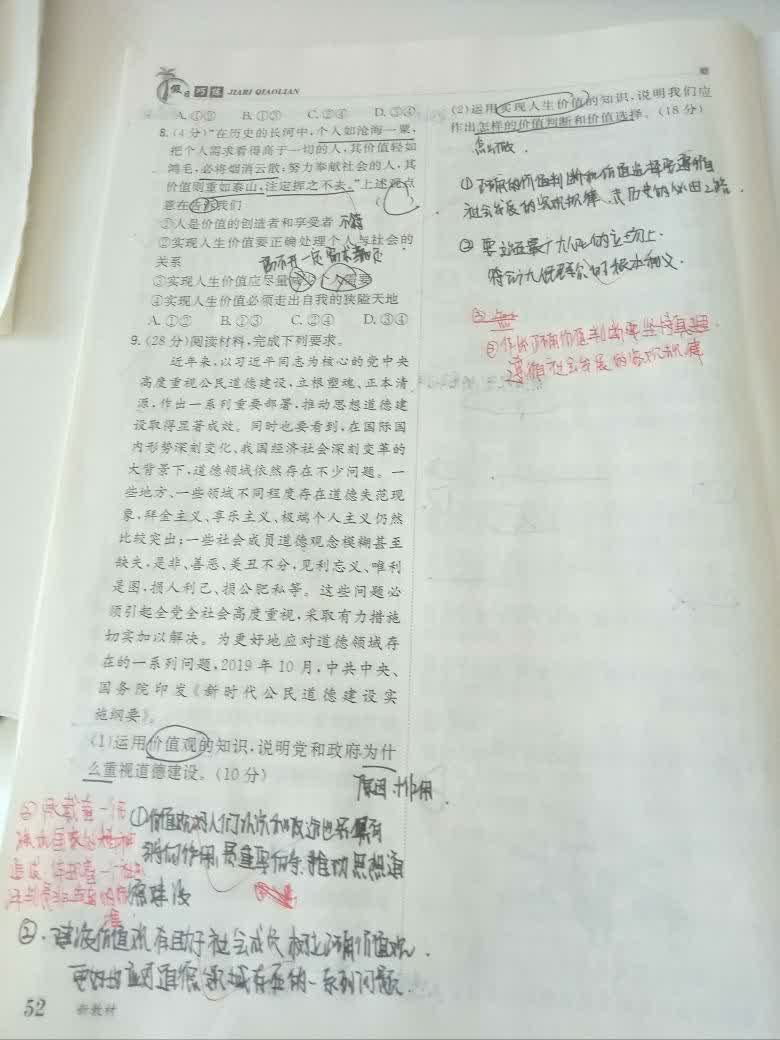 假日巧练 JIARI QIAOLIAN
A.①② B.①③ C.②④ D.③④
8.(4分)“在历史的长河中,个人如沧海一粟,
把个人需求看得高于一切的人,其价值轻如
鸿毛,必将烟消云散;努力奉献社会的人,其
价值则重如泰山,注定挥之不去。”上述观点
意在告诉我们 (
①人是价值的创造者和享受者
②实现人生价值要正确处理个人与社会的
关系
③实现人生价值应尽量减少个人需要
④实现人生价值必须走出自我的狭隘天地
A.①② B.①③ C.②④ D.③④
9.(28分)阅读材料,完成下列要求。
近年来,以习近平同志为核心的党中央
高度重视公民道德建设,立根塑魂、正本清
源,作出一系列重要部署,推动思想道德建
设取得显著成效。同时也要看到,在国际国
内形势深刻变化、我国经济社会深刻变革的
大背景下,道德领域依然存在不少问题。一
些地方、一些领域不同程度存在道德失范现
象,拜金主义、享乐主义、极端个人主义仍然
比较突出;一些社会成员道德观念模糊甚至
缺失,是非、善恶、美丑不分,见利忘义、唯利
是图,损人利己、损公肥私等。这些问题必
须引起全党全社会高度重视,采取有力措施
切实加以解决。为更好地应对道德领域存
在的一系列问题,2019年10月,中共中央、
国务院印发《新时代公民道德建设实
施纲要》。
(1)运用价值观的知识,说明党和政府为什
么重视道德建设。(10分)
原因 作用
①价值观对人们认识和改造世界具有
导向作用,是重要向导,推动思想道
德建设
②.建设价值观有助于社会成员树立正确价值观.
更好地应对道德领域存在的一系列问题.
52 新教材
(2)运用实现人生价值的知识,说明我们应
作出怎样的价值判断和价值选择。(18分)
怎么做.
①正确的价值判断和价值选择要遵循
社会发展的客观规律,走历史的必由之路.
②要站在最广大人民的立场上.
③
③作出正确价值判断要坚持真理.
遵循社会发展的客观规律